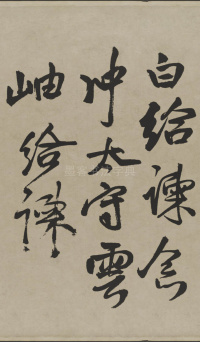 白給諫念
冲太守雲
岫給諫